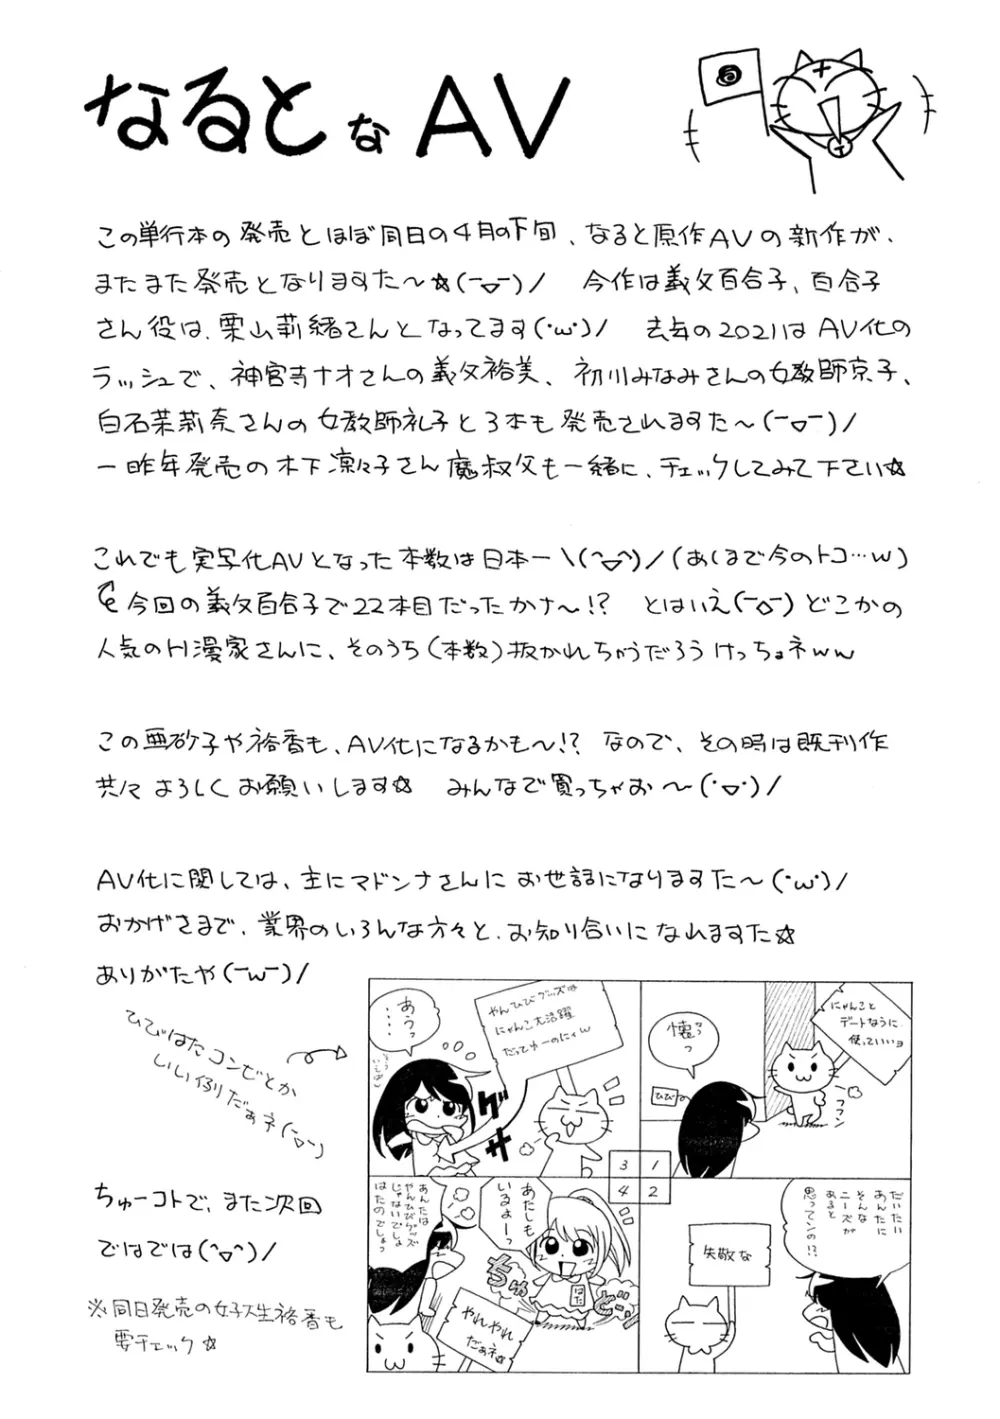 なるとなAV
この単行本の発売とほぼ同日の4月の下旬、なると原作AVの新作が、
またまた発売となりますた～☆(ｰ▽ｰ)/ 今作は義父百合子、百合子
さん役は、栗山莉緒さんとなってます(･ω･)/ 去年の2021は AV化の
ラッシュで、神宮寺ナオさんの義父裕美、初川みなみさんの女教師京子、
白石茉莉奈さんの女教師礼子と3本も発売されますた～(ｰ▽ｰ)/
一昨年発売の木下凛々子さん魔叔父も一緒に、チェックしてみて下さい☆
これでも実写化AVとなった本数は日本一\(^▽^)/(あくまで今のトコ…w)
今回の義父百合子で22本目だったかナ～!? とはいえ(ｰ▽ｰ)どこかの
人気のH漫家さんに、そのうち(本数)抜かれちゃうだろうけっちょネww
この亜砂子や裕香も、AV化になるかも～!? なので、その時は既刊作
共々よろしくお願いします☆ みんなで買っちゃお～(･▽･)/
AV化に関しては、主にマドンナさんにお世話になりますた～(･ω･)/
おかげさまで、業界のいろんな方々と、お知り合いになれますた☆
ありがたや(ｰωｰ)/
ひびはたコンビとか
いい例りだぁネ(ｰ▽ｰ)
ちゅーコトで、また次回
ではでは(^▽^)/
※同日発売の女子大生裕香も
要チェック☆
にゃんこと
デートなうに
使っていいョ
懐っ
ひび
フフン
だいたい
あんたに
そんな
ニーズが
あると
思ってンの!?
失敬な
やんひびグッズは
にゃんこ大活躍
だってゆーのにィw
あうっ
‥‥
グサ
あたしも
いるよぉーっ
はた
あんたは
やんひびグッズ
じゃないでしょ
はたのでしょっ
やれやれ
だぁネ☆
3 1
4 2